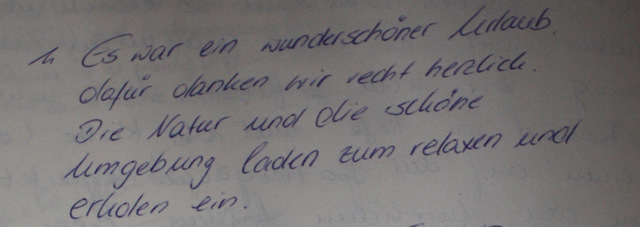 Es war ein wunderschöner Urlaub.
dafür danken wir recht herzlich.
Die Natur und die schöne
Umgebung laden zum relaxen und
erholen ein.